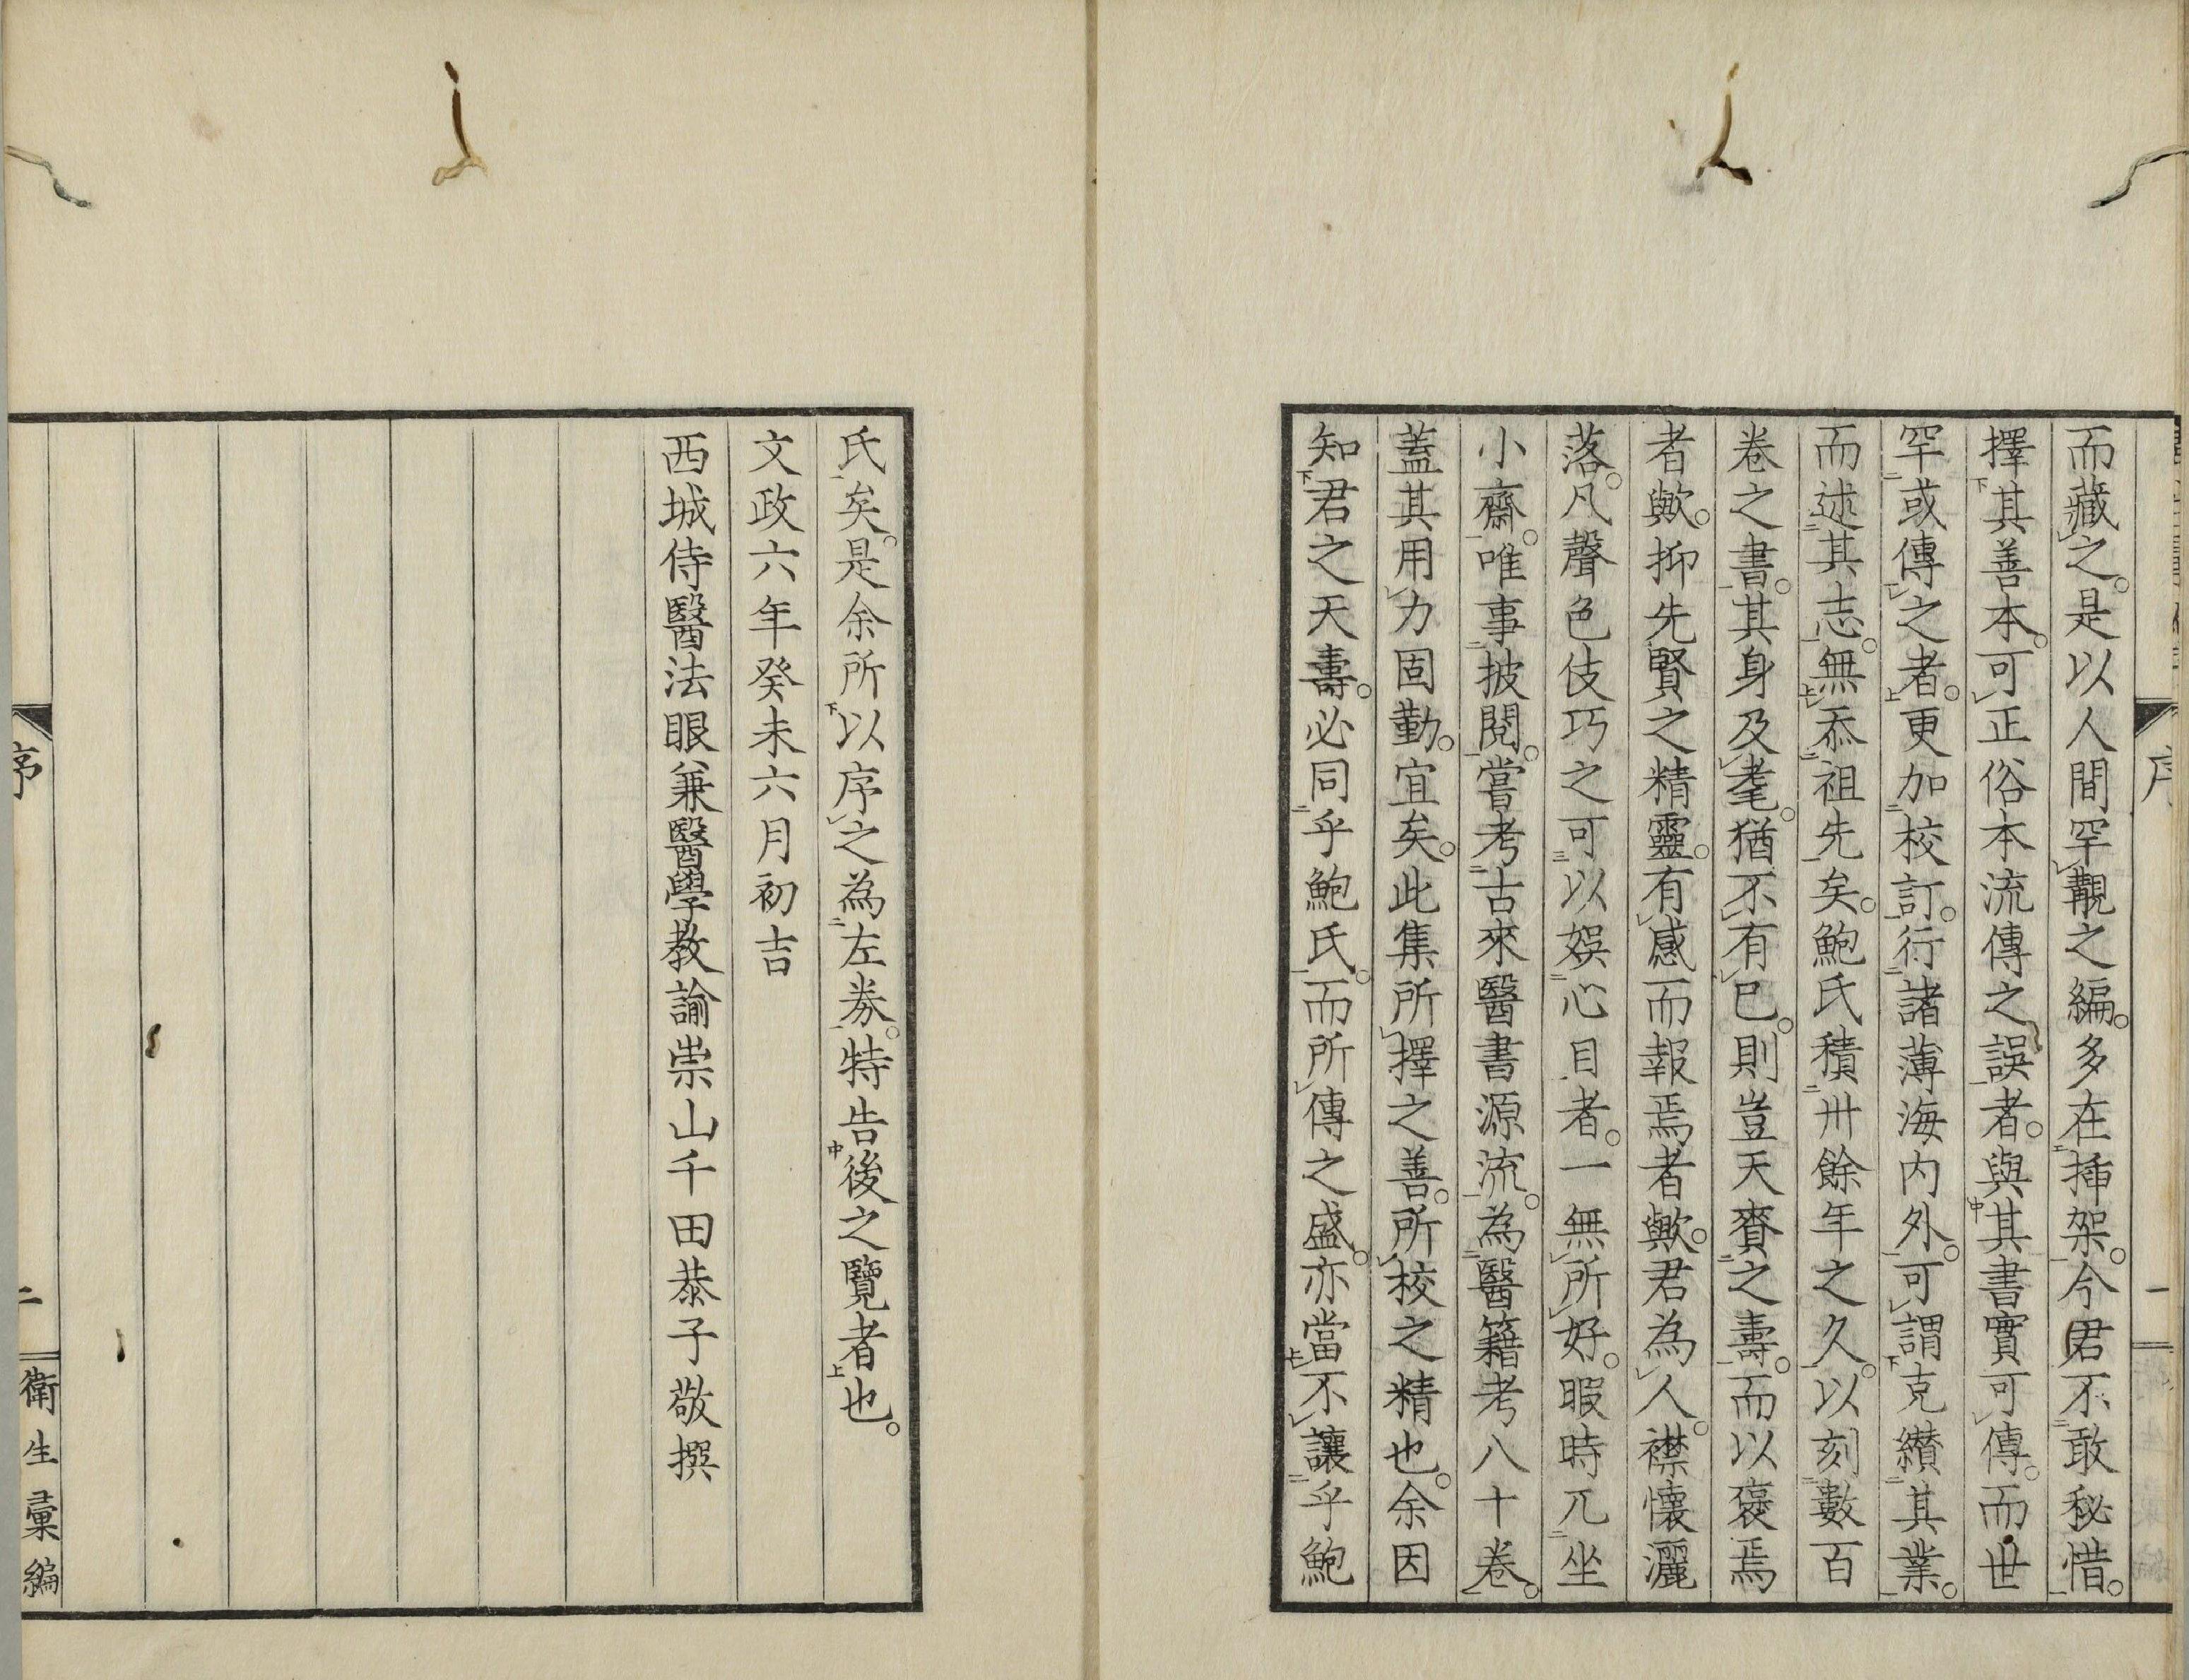 序
一
而藏之。是以人間罕覯之編。多在挿架。今君不敢秘惜。
擇其善本。可正俗本流傳之誤者。與其書實可傳。而世
罕或傳之者。更加校訂。行諸薄海内外。可謂克纉其業。
而述其志。無忝祖先矣。鮑氏積卅餘年之久。以刻數百
卷之書。其身及耄。猶不有已。則豈天賚之壽。而以襃焉
者歟。抑先賢之精靈。有感而報焉者歟。君為人。襟懷灑
落。凡聲色伎巧之可以娯心目者。一無所好。暇時兀坐
小齋。唯事披閲。嘗考古來醫書源流。為醫籍考八十卷。
蓋其用力固勤。宜矣。此集所擇之善。所校之精也。余因
知君之天壽。必同乎鮑氏。而所傳之盛。亦當不讓乎鮑
氏矣。是余所以序之為左券。特告後之覽者也。
文政六年癸未六月初吉
西城侍醫法眼兼醫學教諭崇山千田恭子敬撰
序
二
衛生彙編